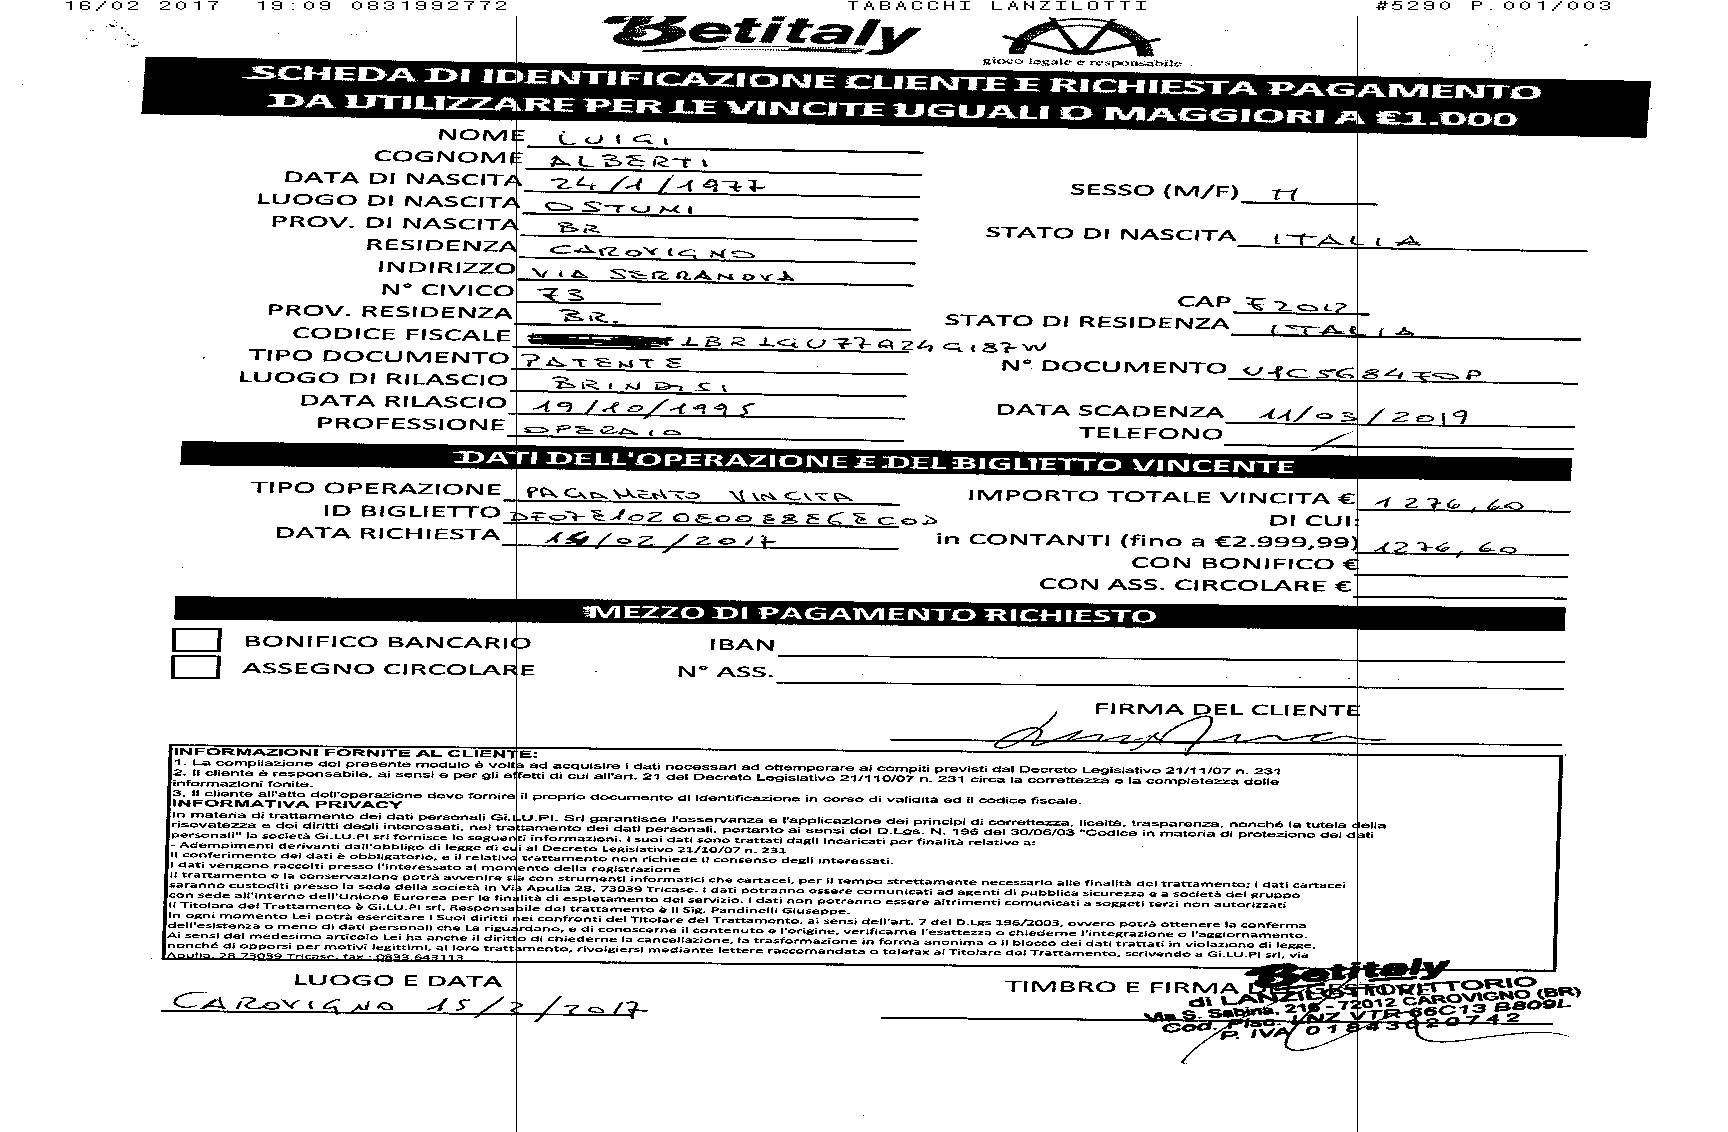 16/02 2017 19:09 0831992772 TABACCHI LANZILOTTI #5290 P.001/003
Betitaly
gioco legale e responsabile
SCHEDA DI IDENTIFICAZIONE CLIENTE E RICHIESTA PAGAMENTO
DA UTILIZZARE PER LE VINCITE UGUALI O MAGGIORI A €1.000
NOME LUIGI
COGNOME ALBERTI
DATA DI NASCITA 24/1/1977 SESSO (M/F) M
LUOGO DI NASCITA OSTUNI
PROV. DI NASCITA BR STATO DI NASCITA ITALIA
RESIDENZA CAROVIGNO
INDIRIZZO VIA SERRANOVA
N° CIVICO 73 CAP 72012
PROV. RESIDENZA BR. STATO DI RESIDENZA ITALIA
CODICE FISCALE LBRLGU77A24G187W
TIPO DOCUMENTO PATENTE N° DOCUMENTO
LUOGO DI RILASCIO BRINDISI
DATA RILASCIO 19/10/1995 DATA SCADENZA 11/03/2019
PROFESSIONE OPERAIO TELEFONO /
DATI DELL'OPERAZIONE E DEL BIGLIETTO VINCENTE
TIPO OPERAZIONE PAGAMENTO VINCITA IMPORTO TOTALE VINCITA € 1276,60
ID BIGLIETTO DI CUI:
DATA RICHIESTA /02/2017 in CONTANTI (fino a €2.999,99) 1276,60
CON BONIFICO €
CON ASS. CIRCOLARE €
MEZZO DI PAGAMENTO RICHIESTO
BONIFICO BANCARIO IBAN
ASSEGNO CIRCOLARE N° ASS.
FIRMA DEL CLIENTE
INFORMAZIONI FORNITE AL CLIENTE:
1. La compilazione del presente modulo è volta ad acquisire i dati necessari ad ottemperare ai compiti previsti dal Decreto Legislativo 21/11/07 n. 231
2. Il cliente è responsabile, ai sensi e per gli effetti di cui all'art. 21 del Decreto Legislativo 21/110/07 n. 231 circa la correttezza e la completezza delle
informazioni fonite.
3. Il cliente all'atto dell'operazione deve fornire il proprio documento di identificazione in corso di validità ed il codice fiscale.
INFORMATIVA PRIVACY
In materia di trattamento dei dati personali Gi.LU.PI. Srl garantisce l'osservanza e l'applicazione dei principi di correttezza, liceità, trasparenza, nonché la tutela della
risevatezza e dei diritti degli interessati, nel trattamento dei dati personali, pertanto ai sensi del D.Lgs. N. 196 del 30/06/03 "Codice in materia di protezione dei dati
personali" la società Gi.LU.PI srl fornisce le seguenti informazioni. I suoi dati sono trattati dagli Incaricati per finalità relative a:
- Adempimenti derivanti dall'obbligo di legge di cui al Decreto Legislativo 21/10/07 n. 231
Il conferimento dei dati è obbligatorio, e il relativo trattamento non richiede il consenso degli interessati.
I dati vengono raccolti presso l'interessato al momento della registrazione
Il trattamento e la conservazione potrà avvenire sia con strumenti informatici che cartacei, per il tempo strettamente necessario alle finalità del trattamento; i dati cartacei
saranno custoditi presso la sede della società in Via Apulia 28, 73039 Tricase. I dati potranno essere comunicati ad agenti di pubblica sicurezza e a società del gruppo
con sede all'interno dell'Unione Eurorea per le finalità di espletamento del servizio. I dati non potranno essere altrimenti comunicati a soggetti terzi non autorizzati
Il Titolare del Trattamento è Gi.LU.PI srl. Responsabile del trattamento è il Sig. Pandinelli Giuseppe.
In ogni momento Lei potrà esercitare i Suoi diritti nei confronti del Titolare del Trattamento, ai sensi dell'art. 7 del D.Lgs 196/2003, ovvero potrà ottenere la conferma
dell'esistenza o meno di dati personali che La riguardano, e di conoscerne il contenuto e l'origine, verificarne l'esattezza o chiederne l'integrazione o l'aggiornamento.
Ai sensi del medesimo articolo Lei ha anche il diritto di chiederne la cancellazione, la trasformazione in forma anonima o il blocco dei dati trattati in violazione di legge,
nonché di opporsi per motivi legittimi, al loro trattamento, rivolgiersi mediante lettere raccomandata o telefax al Titolare del Trattamento, scrivendo a Gi.LU.PI srl, via
Apulia, 28 73039 Tricase, fax : 0833.643113
LUOGO E DATA TIMBRO E FIRMA
CAROVIGNO 15/2/2017
Betitaly
di LANZILOTTI VITTORIO
Via S. Sabina, 218 - 72012 CAROVIGNO (BR)
Cod. Fisc. LNZ VTR 66C13 B809L
P. IVA 01843020742